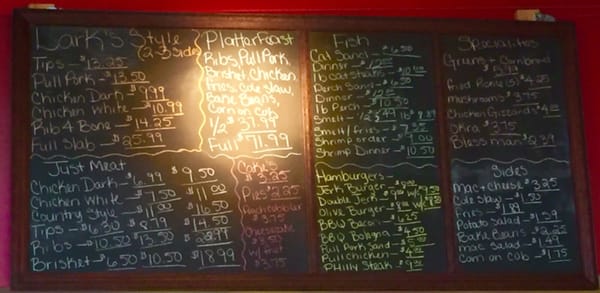 Lark's Style
(2-3 sides)
Tips - $13.25
Pull Pork - $13.50
Chicken Dark - $9.99
Chicken White - $10.99
Rib 4 Bone - $14.25
Full Slab - $25.99
Platter Feast
Ribs, Pull Pork,
Brisket, Chicken
Fries, Cole Slaw,
Bake Beans,
Corn on cob
1/2 $ 37.99
Full $71.99
Just Meat
Chicken Dark - $6.99 $9.50
Chicken White - $7.50 $11.00
Country Style - $11.00 $16.50
Tips - $6.30 $8.79 $14.50
Ribs - $10.50 $13.50 $22.99
Brisket - $6.50 $10.50 $18.99
Cakes
$3.25
Pies $2.25
$3.75
Cheesecake
$3.50
w/ fruit
$3.75
Fish
Cat Sand - $6.50
Dinner - $12.00
1 lb Cat Strams
Perch Sand
Dinner
1 lb Perch
Smelt
Smelt / fries
Shrimp order
Shrimp Dinner - $10.50
Hamburgers
Jerk Burger
Double Jerk
Olive Burger
BBQ Baco - $6.25
BBQ Bologna - $4.50
Pull Pork Sand
Pull Chicken
Philly Steak
Specialities
Greens + Cornbread
Fried Pickle $4.25
mushrooms $3.75
Chicken Gizzards
Okra $3.75
Bless man $2.39
Sides
mac + cheese $3.25
Cole Slaw $1.50
Fries - $1.89
Potato Salad - $1.59
Bake Beans - $2.25
mac Salad - $1.49
Corn on cob - $1.75